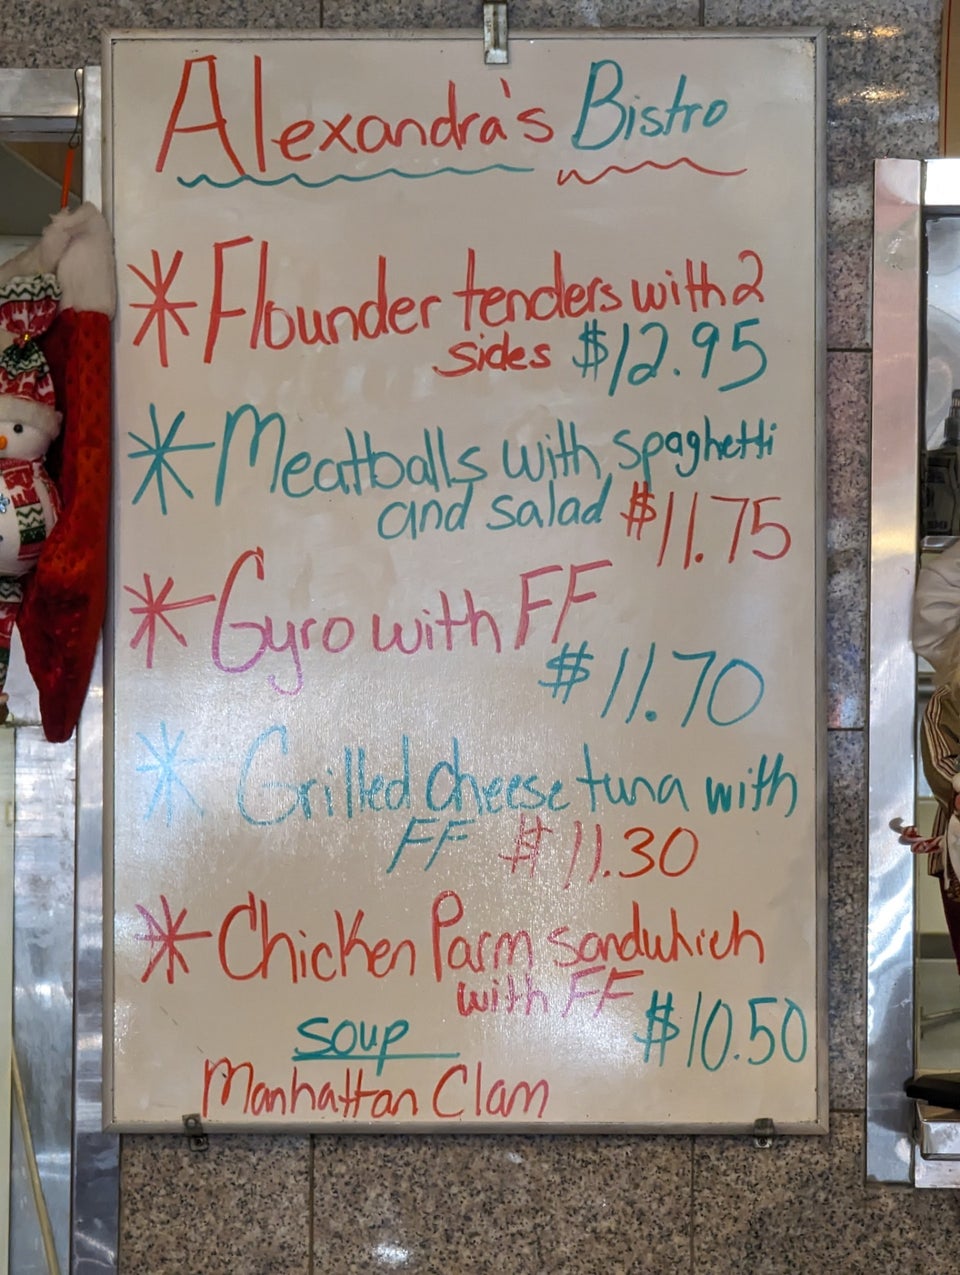 Alexandra's Bistro
* Flounder tenders with 2
sides $12.95
* Meatballs with spaghetti
and salad $11.75
* Gyro with FF
$11.70
* Grilled cheese tuna with
FF $11.30
* Chicken Parm sandwhich
with FF
$10.50
soup
Manhattan Clam